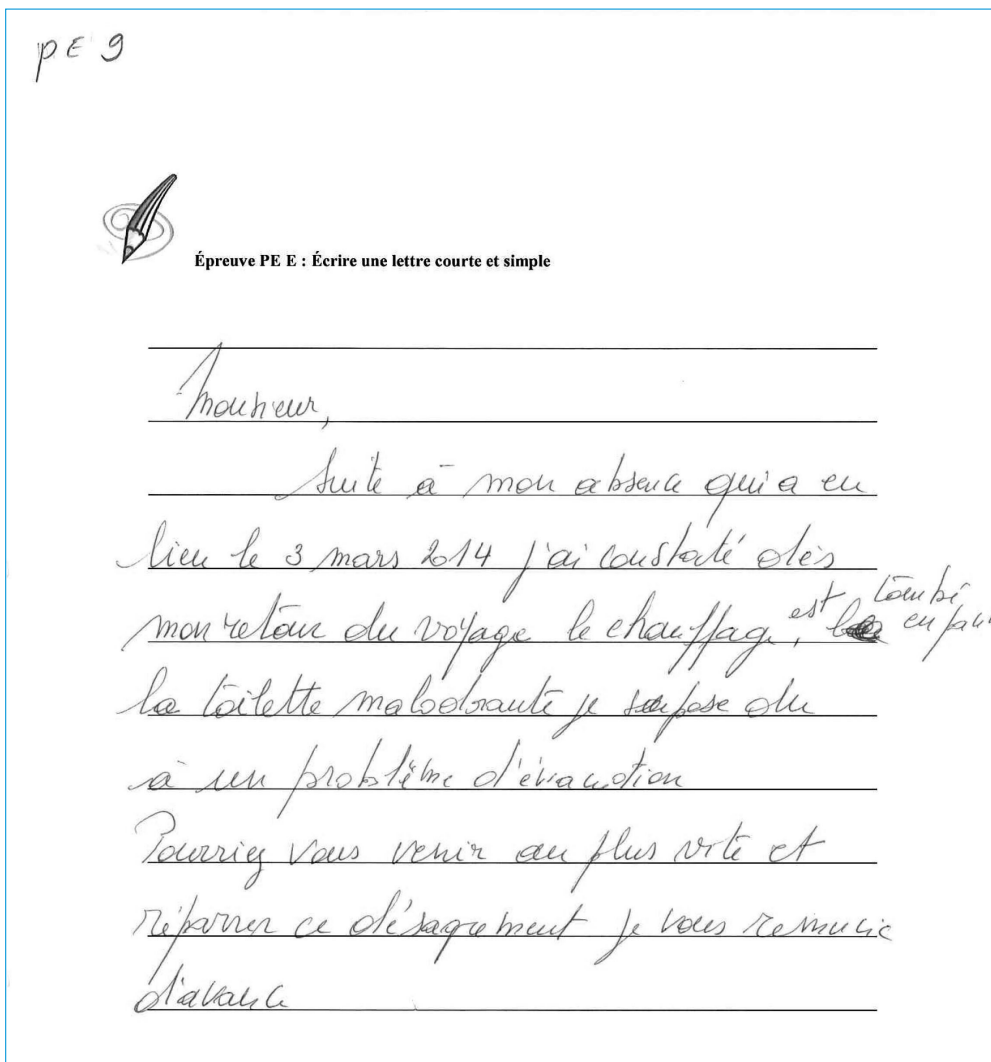 PE 9
Épreuve PE E : Écrire une lettre courte et simple
Monsieur,
Suite à mon absence qui a eu
lieu le 3 mars 2014 j'ai constaté dès
mon retour du voyage le chauffage, est tombé en pan
la toilette malodorante je supose du
à un problème d'évacuation
Pourriez vous venir au plus vite et
réparrer ce désagrement je vous remercie
d'avance